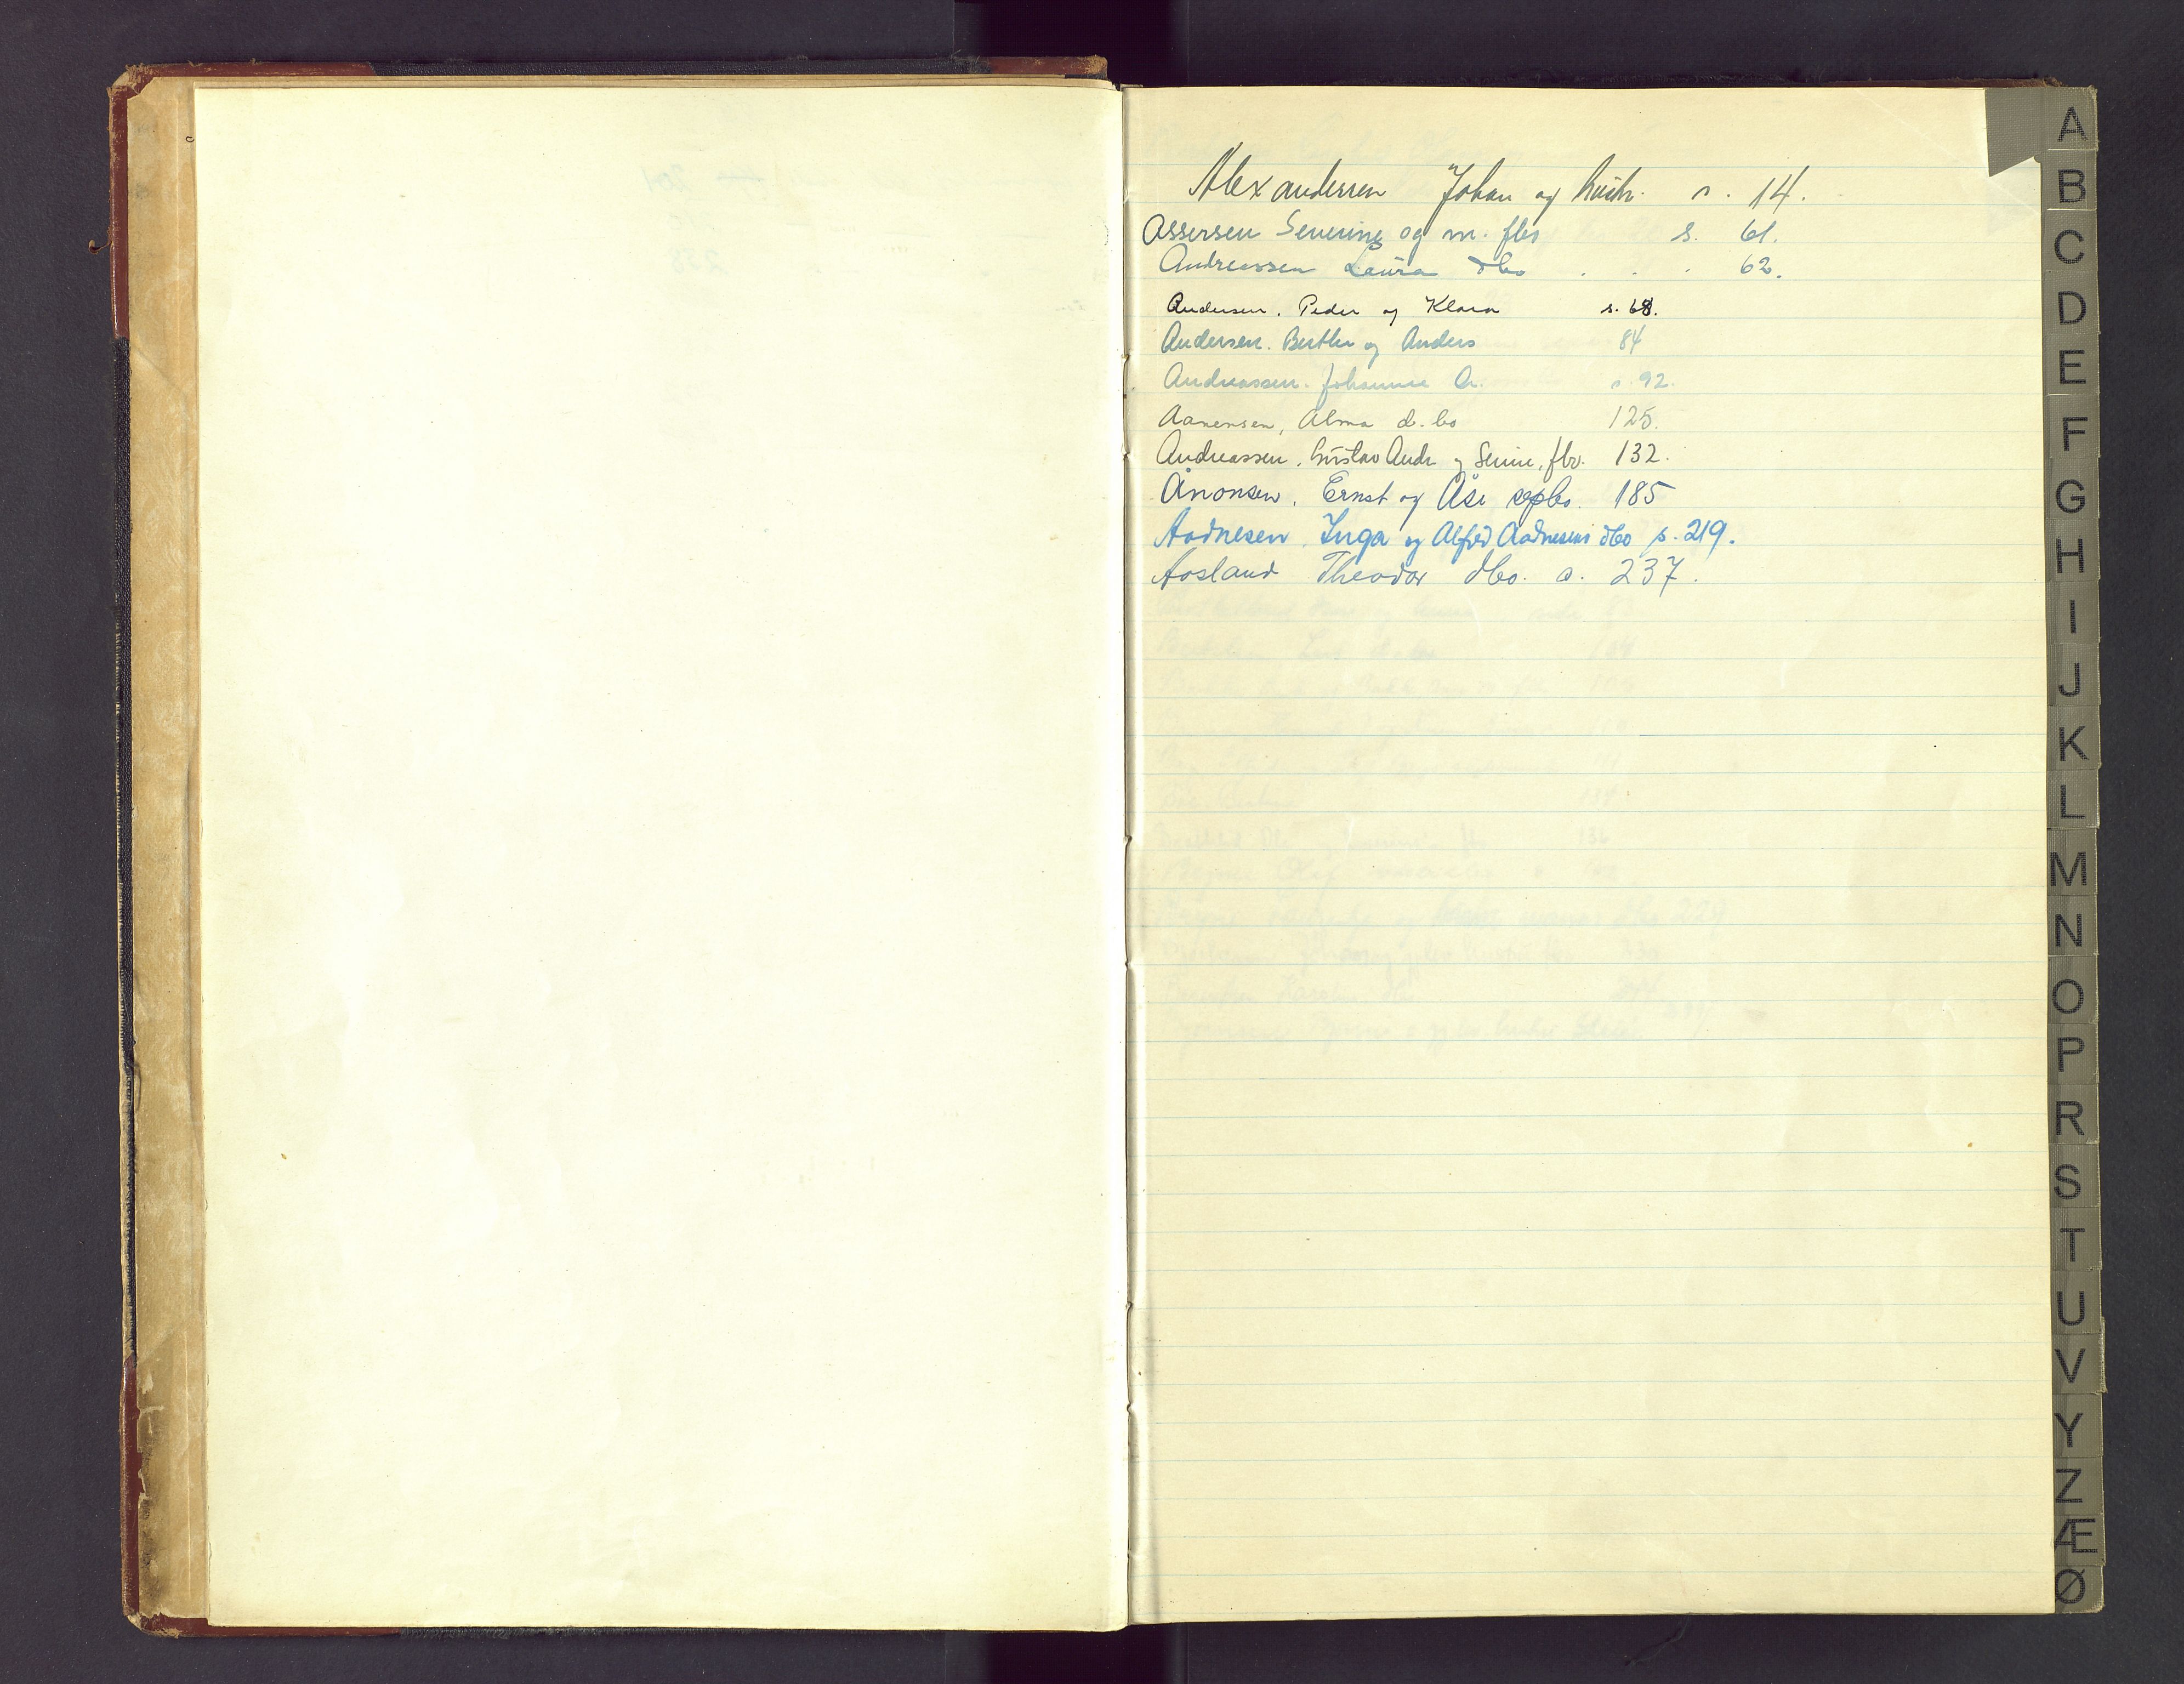 Alexandersen Johan og hustr. s. 14.
Assersen Severine og m. fbo s. 61.
Andreassen Laura dbo . . . 62.
Andersen. Peder og Klara s. 68.
Andersen. Berthe og Anders 84
Andreassen. Johanne A. s. 92.
Aanensen, Alma d.bo 125.
Andreassen. Gustav Andr. og Serine, fbo. 132.
Ånonsen. Ernst og Åse sepbo. 185
Aadnesen Inga og Alfred Aadnesens dbo s. 219.
Aasland Theodor dbo. s. 237.
A
B
C
D
E
F
G
H
I
J
K
L
M
N
O
P
R
S
T
U
V
Y
Z
Æ
Ø